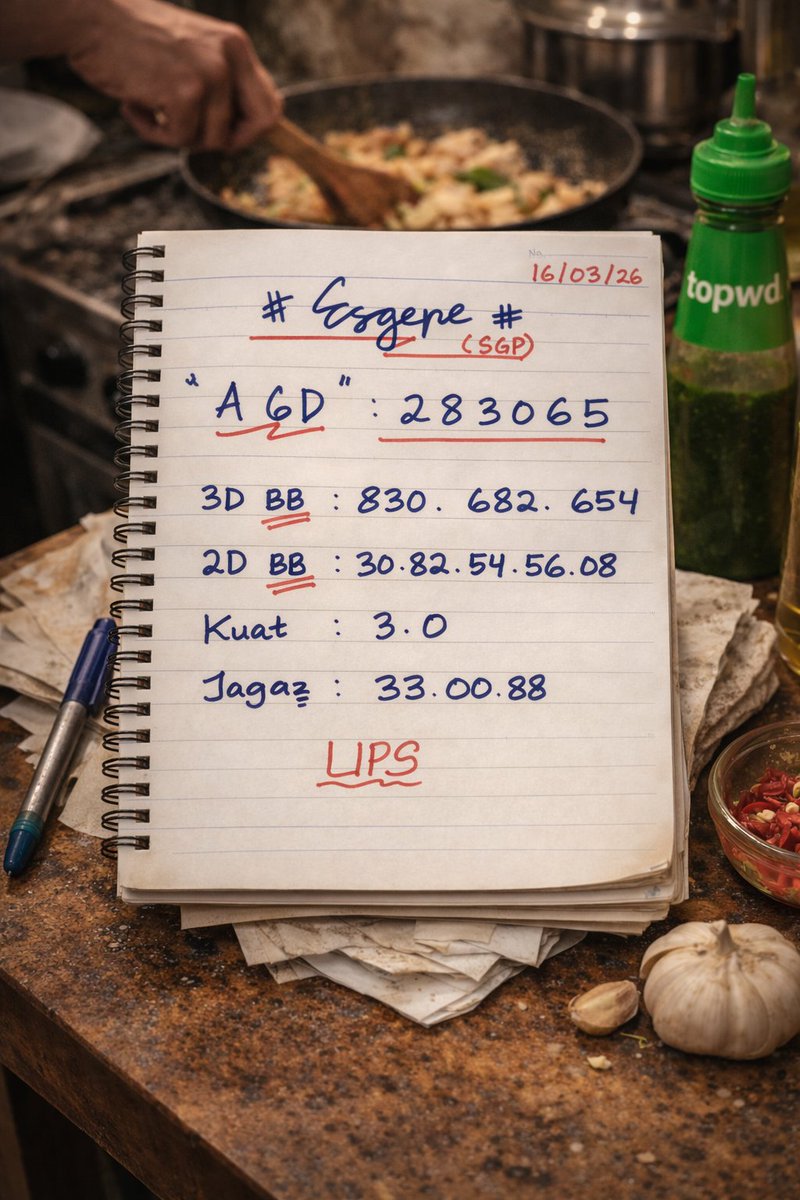 No.
16/03/26
# Esgepe #
(SGP)
"A 6D" : 283065
3D BB : 830. 682. 654
2D BB : 30.82.54.56.08
Kuat : 3.0
Jagaz : 33.00.88
UPS
topwd.